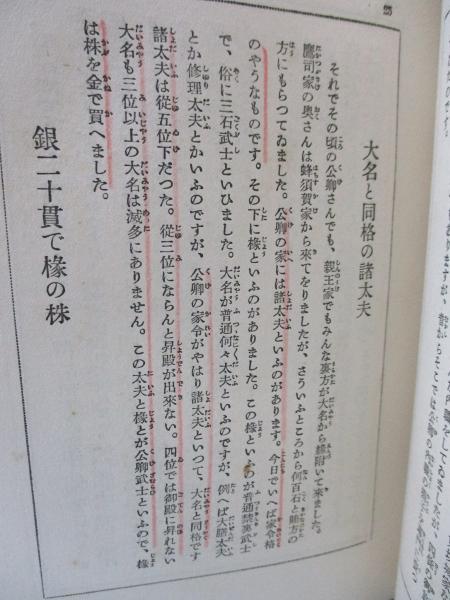 25
大名と同格の諸太夫
それでその頃の公卿さんでも、親王家でもみんな裏方が大名から縁附いて来ました。
鷹司家の奥さんは蜂須賀家から來てをりましたが、さういふところから何百石と賄方の
方にもらつてゐました。公卿の家には諸太夫といふのがあります。今日でいへば家令格
のやうなものです。その下に椽といふのがありました。この椽といふのが普通禁裏武士
で、俗に三石武士といひました。大名が普通何々太夫といふのですが、例へば大膳太夫
とか修理太夫とかいふのですが、公卿の家令がやはり諸太夫といつて、大名と同格です
諸太夫は從五位下だつた。從三位にならんと昇殿が出來ない。四位では御殿に昇れない
大名も三位以上の大名は滅多にありません。この太夫と椽とが公卿武士といふので、椽
は株を金で買へました。
銀二十貫で椽の株